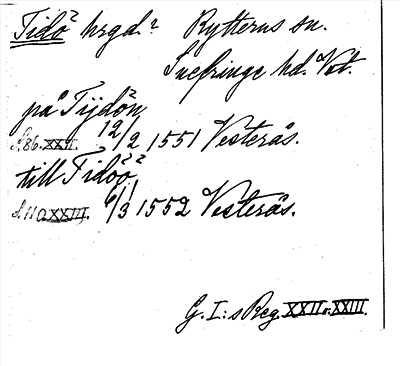 Tidö² hrgd.² Rytterns sn.
Snefringe hd. Vst.
på Tijdön²
s. 86. XXII. 12/2 1551 Vesterås.
till Tidöö²²
s. 110 XXIII. 6/3 1552 Vesterås.
G. I:s Reg. XXII o. XXIII.